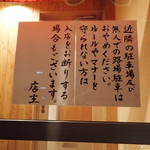 近隣の駐車場及び
無人での路場駐車は
おやめください。
ルールやマナーを
守られない方は
入店をお断りする
場合もございます。
店主